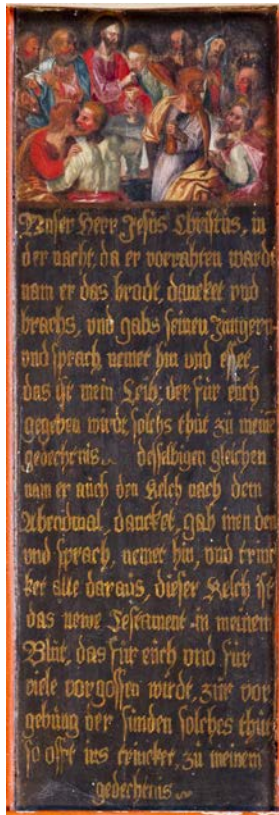 Vnser Herr Jesus Christus, in
der nacht, da er vorrahten ward
nam er das brodt, dancket vnd
brachs, vnd gabs seinen Jüngern
vnd sprach nemet hin vnd esset,
das ist mein Leib; der für euch
gegeben wirdt, solchs thut zu meine
gedechtnis. desselbigen gleichen
nam er auch den Kelch nach dem
Abendmal, dancket, gab inen de
vnd sprach, nemet hin, vnd trin
ket alle daraus, dieser Kelch ist
das newe Testament in meinem
Blut, das für euch vnd für
viele vorgossen wirdt, zur vor
gebung der sünden solches thut
so offt irs trincket, zu meinem
gedechtnis